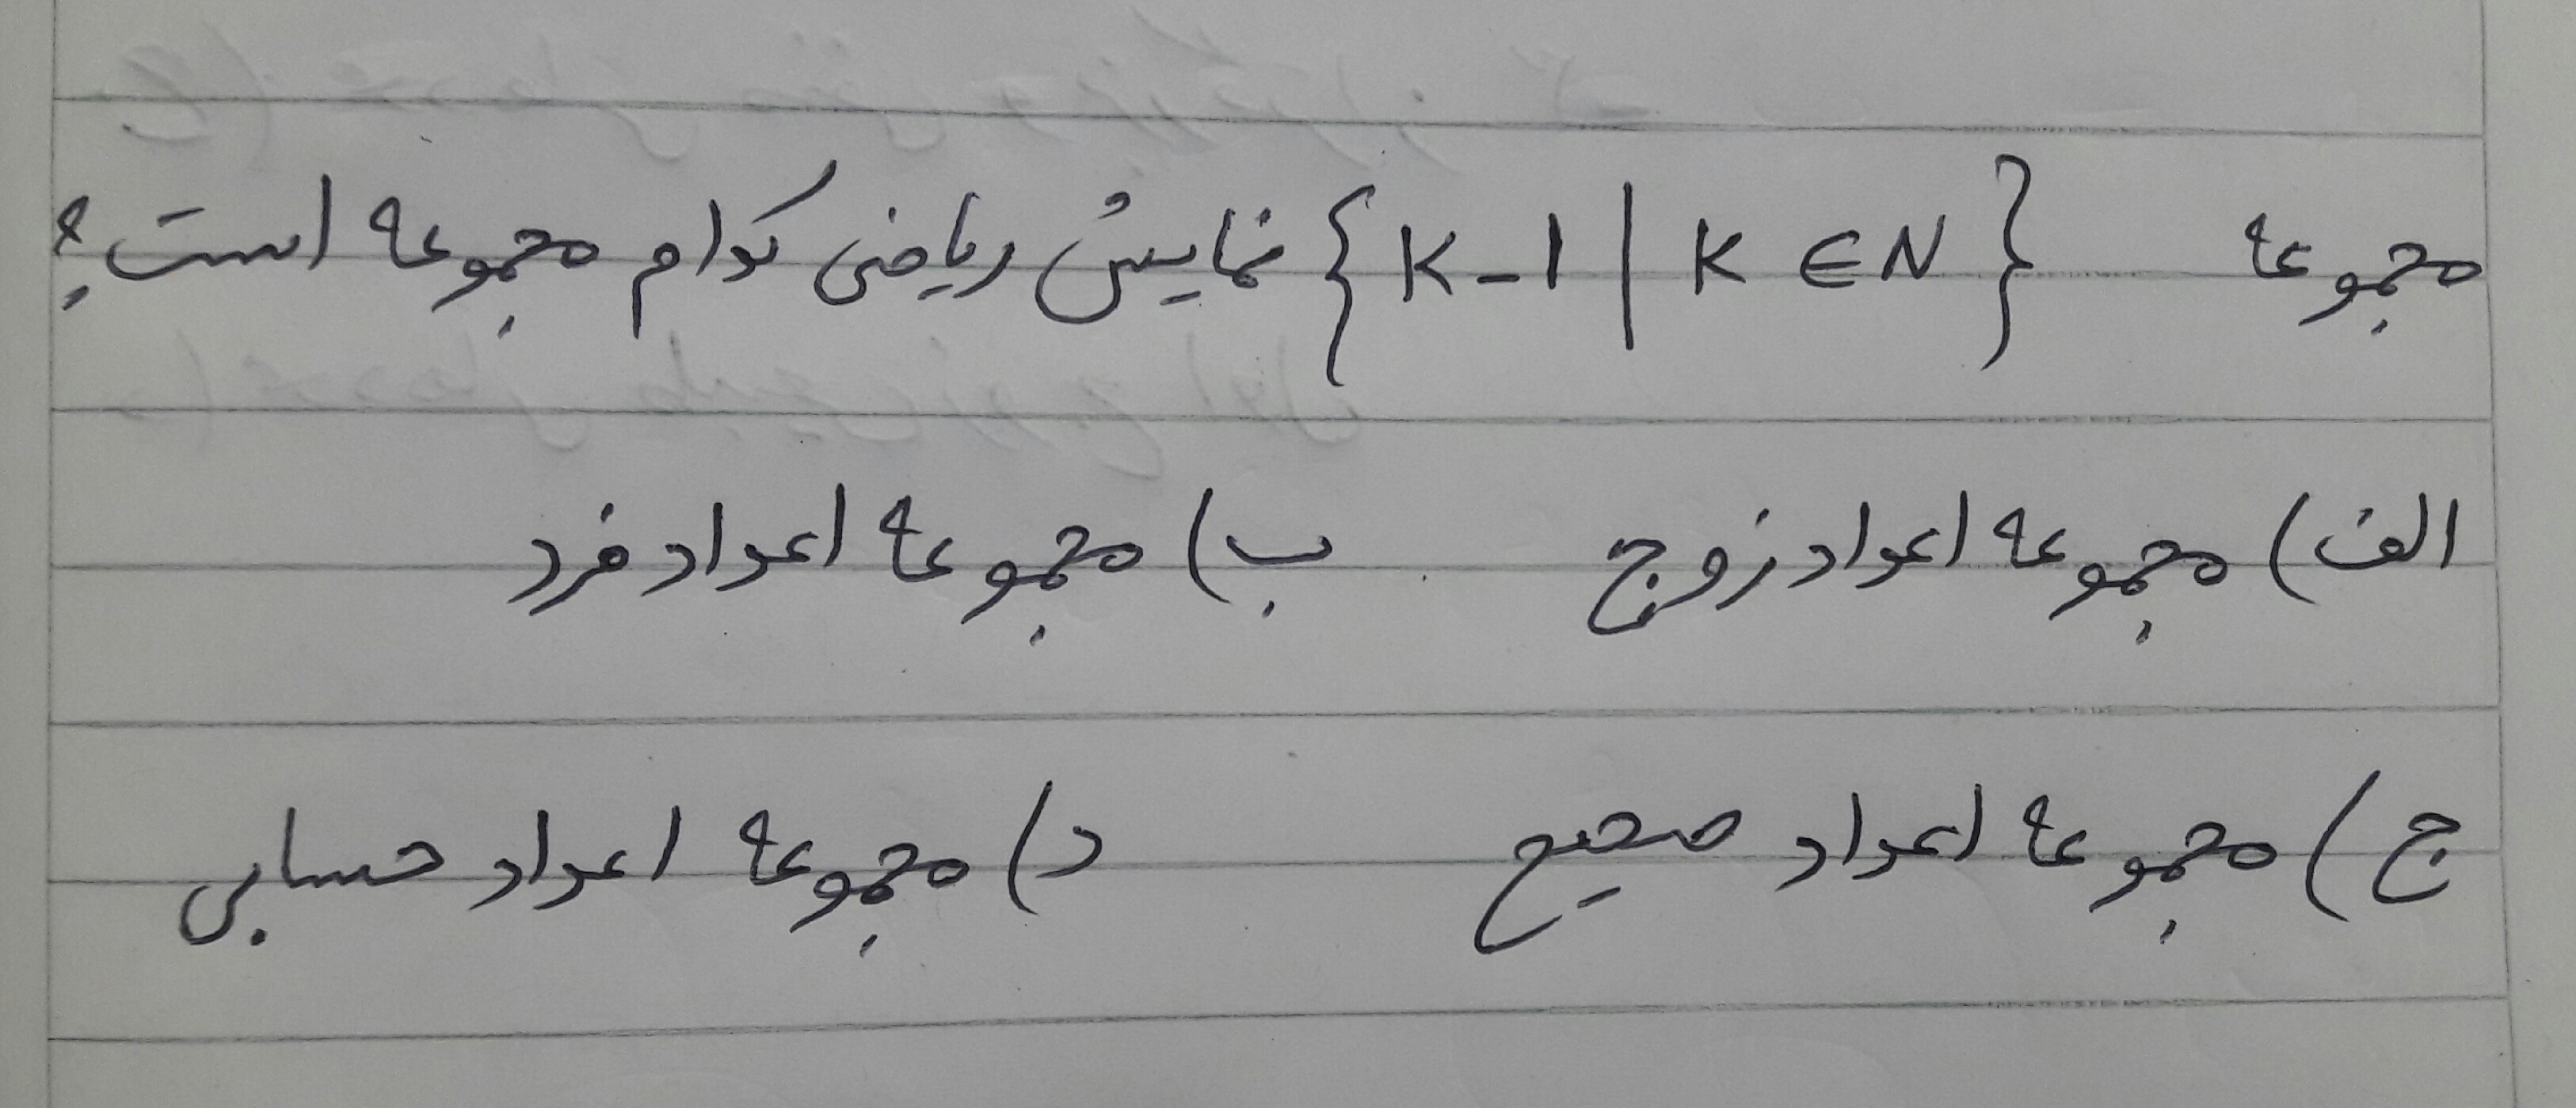 مجموعه {K-1 | K ∈ N} نمایش ریاضی کدام مجموعه است؟
الف) مجموعه اعداد زوج ب) مجموعه اعداد فرد
ج) مجموعه اعداد صحیح د) مجموعه اعداد حسابی